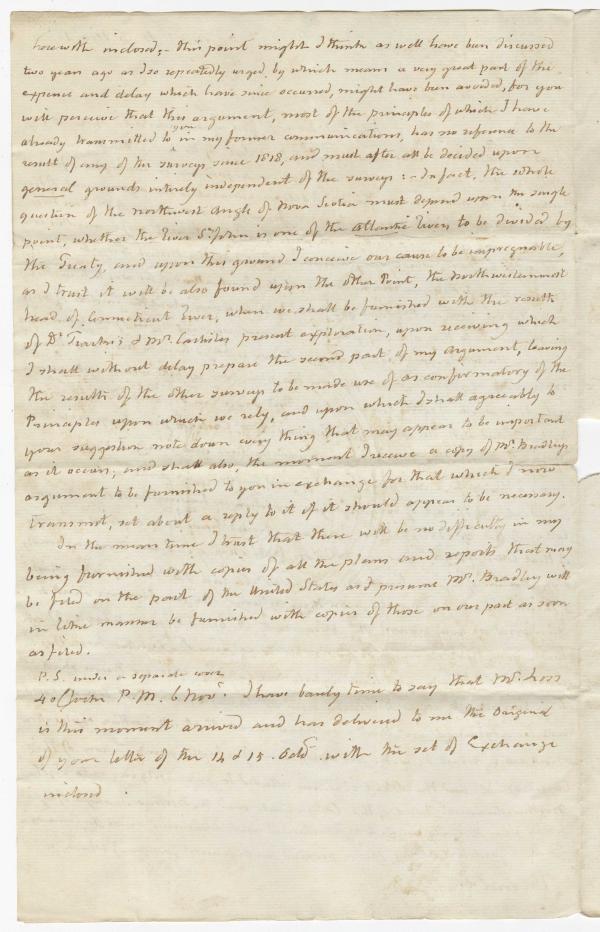 herewith inclosed; – this point might I think as well have been discussed
two years ago as I so repeatedly urged, by which means a very great part of the
expence and delay which have since occurred, might have been avoided, for you
will perceive that this argument, most of the principles of which I have
already transmitted to you in my former communications, has no reference to the
result of any of the surveys since 1818, and must after all be decided upon
general grounds intirely independent of the surveys: – In fact, the whole
question of the northwest angle of Nova Scotia must depend upon the single
point, whether the River St. John is one of the atlantic Rivers to be divided by
the Treaty, and upon this ground I conceive our cause to be impregnable,
as I trust it will be also found upon the other Point, the Northwesternmost
head of Connecticut River, when we shall be furnished with the result
of Dr. Tiarks's & Mr. Carliles present exploration, upon receiving which
I shall without delay prepare the second part of my argument, leaving
the results of the other surveys to be made use of as confirmatory of the
Principles upon which we rely, and upon which I shall agreeably to
your suggestion note down every thing that may appear to be important
as it occurs; and shall also, the moment I receive a copy of Mr. Bradleys
argument to be furnished to you in exchange for that which I now
transmit, set about a reply to it if it should appear to be necessary.
In the mean time I trust that there will be no difficulty in my
being furnished with copies of all the plans and reports that may
be filed on the part of the United States as I presume Mr. Bradley will
in like manner be furnished with copies of those on our part as soon
as filed.
P.S. under a separate cover
4 oClock P.M. 6 Novr. I have barely time to say that Mr. Ross
is this moment arrived and has delivered to me the Original
of your letter of the 14 & 15. Octr. with the set of Exchange
inclosed.